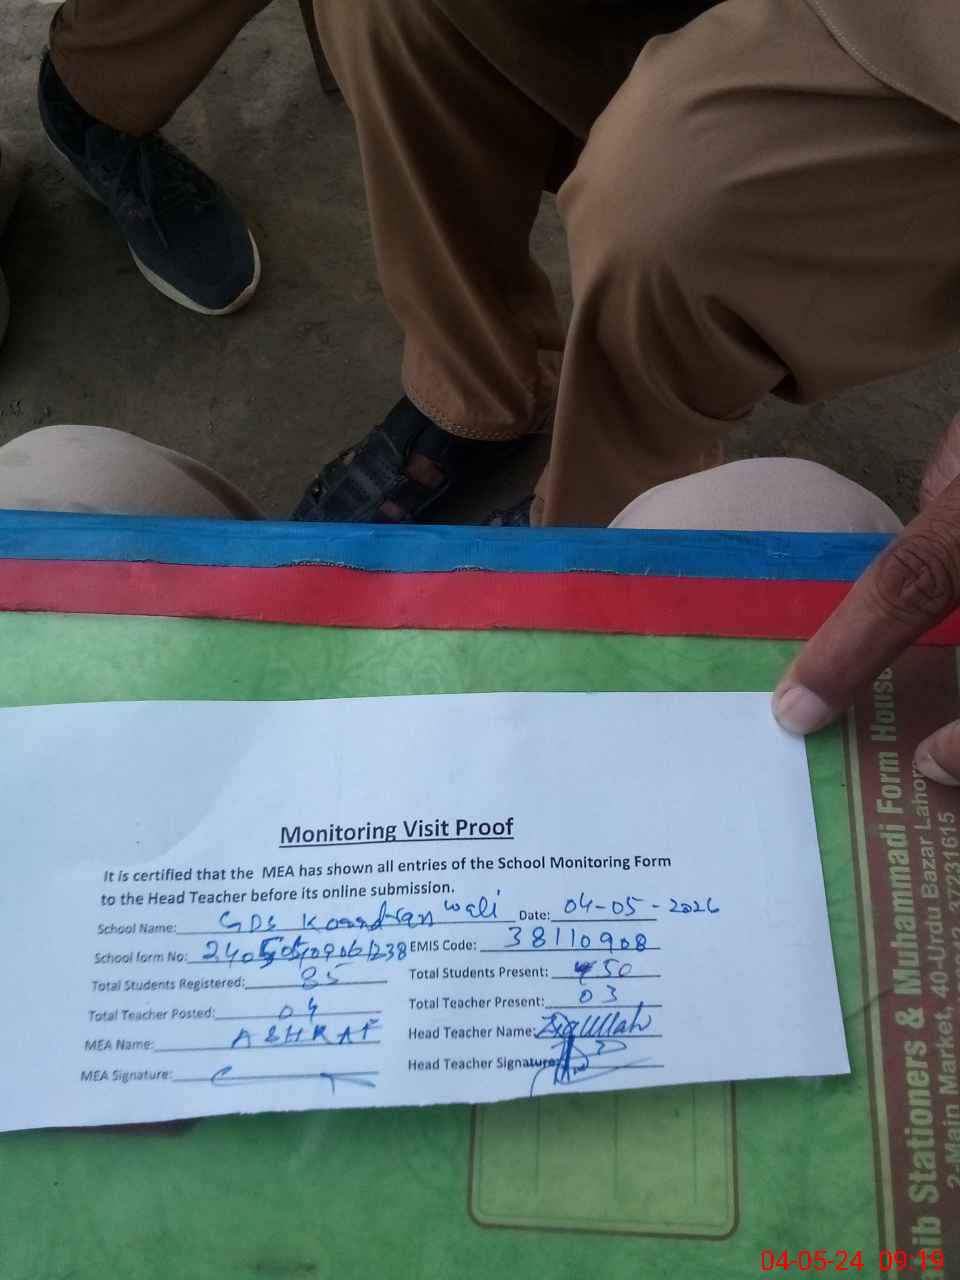 Monitoring Visit Proof
It is certified that the MEA has shown all entries of the School Monitoring Form
to the Head Teacher before its online submission.
School Name: GPS wali Date: 04-05-2026
School form No: EMIS Code: 38110908
Total Students Registered: 85 Total Students Present: 50
Total Teacher Posted: 04 Total Teacher Present: 03
MEA Name: ASHRAF Head Teacher Name: Ziaullah
MEA Signature: Head Teacher Signature:
ib Stationers & Muhammadi Form House
2-Main Market, 40-Urdu Bazar Lahore
37231615
04-05-24 09:19